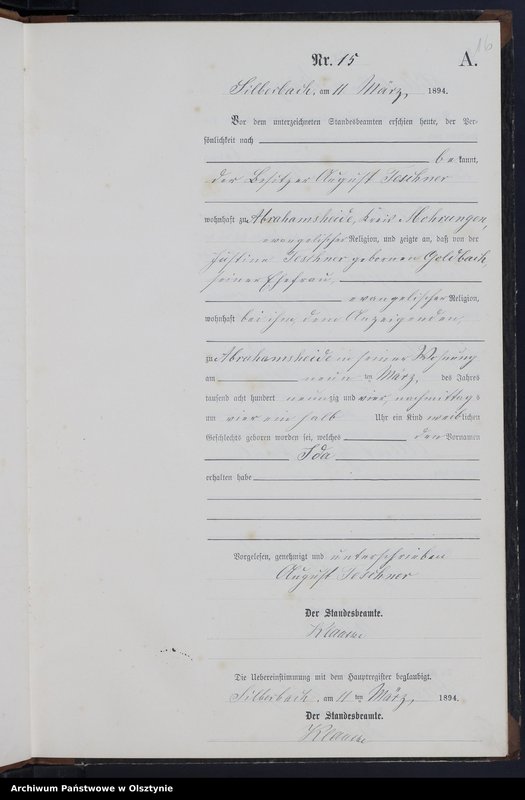 16
Nr. 15 A.
Silberbach, am 11 März, 1894.
Vor dem unterzeichneten Standesbeamten erschien heute, der Per-
sönlichkeit nach
bekannt,
der Besitzer August Teschner
wohnhaft zu Abrahamsheide, Kreis Mohrungen,
evangelischer Religion, und zeigte an, daß von der
Justine Teschner gebornen Goldbach,
seiner Ehefrau,
evangelischer Religion,
wohnhaft bei ihm, dem Anzeigenden,
zu Abrahamsheide in seiner Wohnung
am neun ten März, des Jahres
tausend acht hundert neunzig und vier, nachmittags
um vier ein halb Uhr ein Kind weiblichen
Geschlechts geboren worden sei, welches den Vornamen
Ida
erhalten habe
Vorgelesen, genehmigt und unterschrieben
August Teschner
Der Standesbeamte.
Die Uebereinstimmung mit dem Hauptregister beglaubigt.
Silberbach, am 11 ten März, 1894.
Der Standesbeamte.
Archiwum Państwowe w Olsztynie